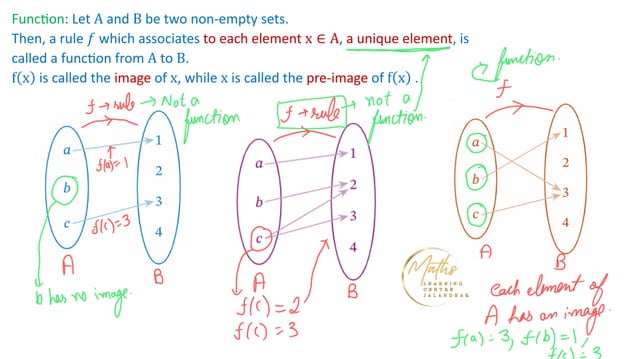 Function: Let A and B be two non-empty sets.
Then, a rule f which associates to each element x ∈ A, a unique element, is
called a function from A to B.
f(x) is called the image of x, while x is called the pre-image of f(x) .
f → rule → Not a
function
a
b
c
1
2
3
4
f(a)=1
f(c)=3
A
B
b has no image.
f → rule → not a
function.
a
b
c
1
2
3
4
A
B
f(c) = 2
f(c) = 3
function.
f
a
b
c
1
2
3
4
A
B
Maths
LEARNING
CENTRE
JALANDHAR
each element of
A has an image.
f(a) = 3, f(b) = 1,
f(c) = 3